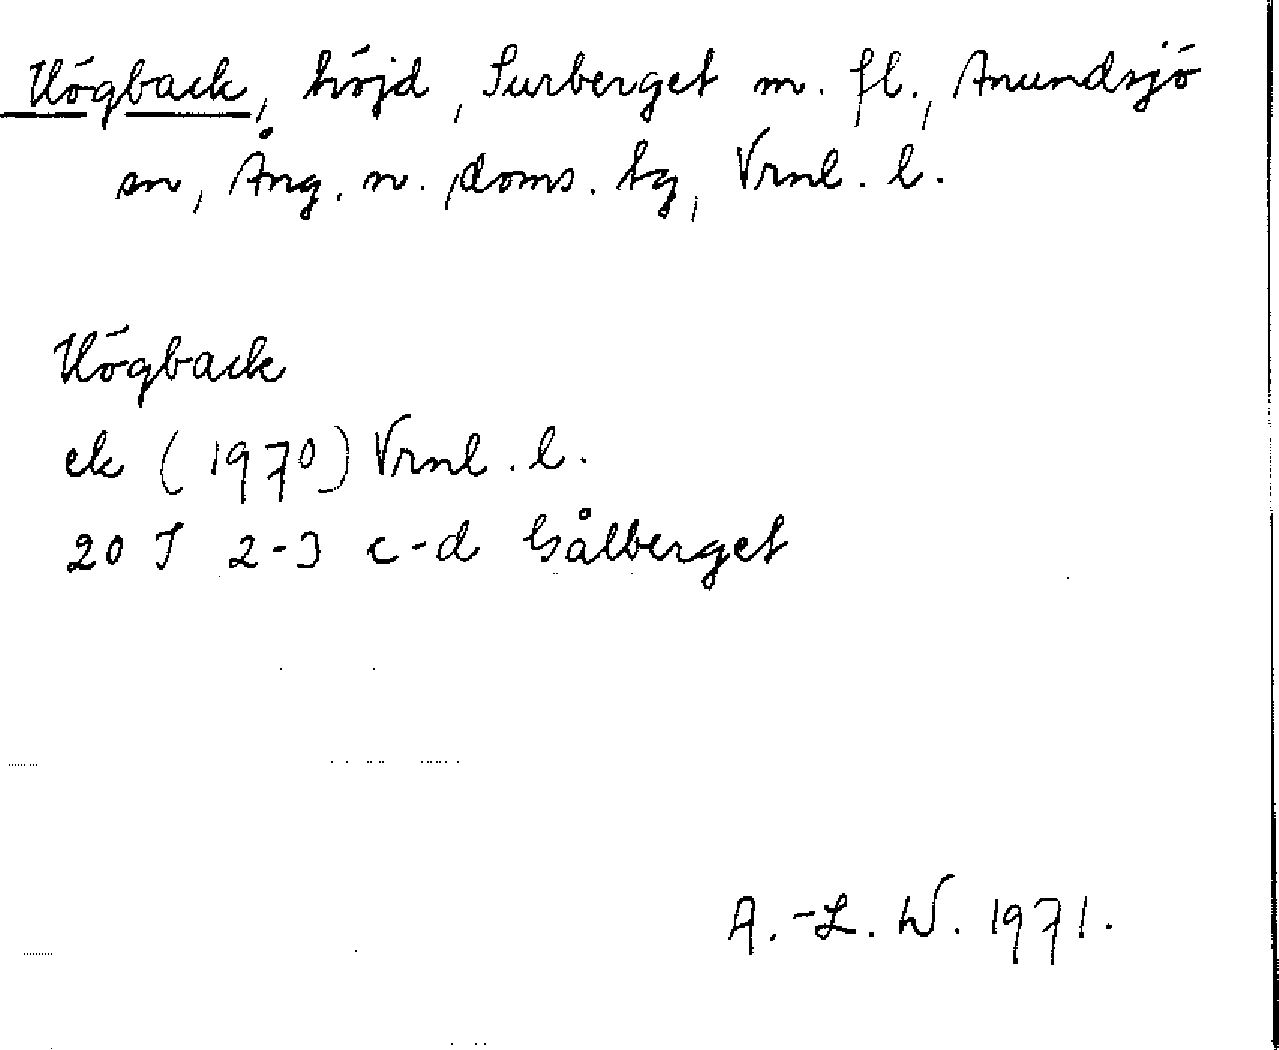 Högback, höjd, Surberget m. fl., Anundsjö
sn, Ång. n. doms. tg, Vrnl. l.
Högback
ek (1970) Vrnl. l.
20 I 2-3 c-d Gålberget
A.-L. W. 1971.